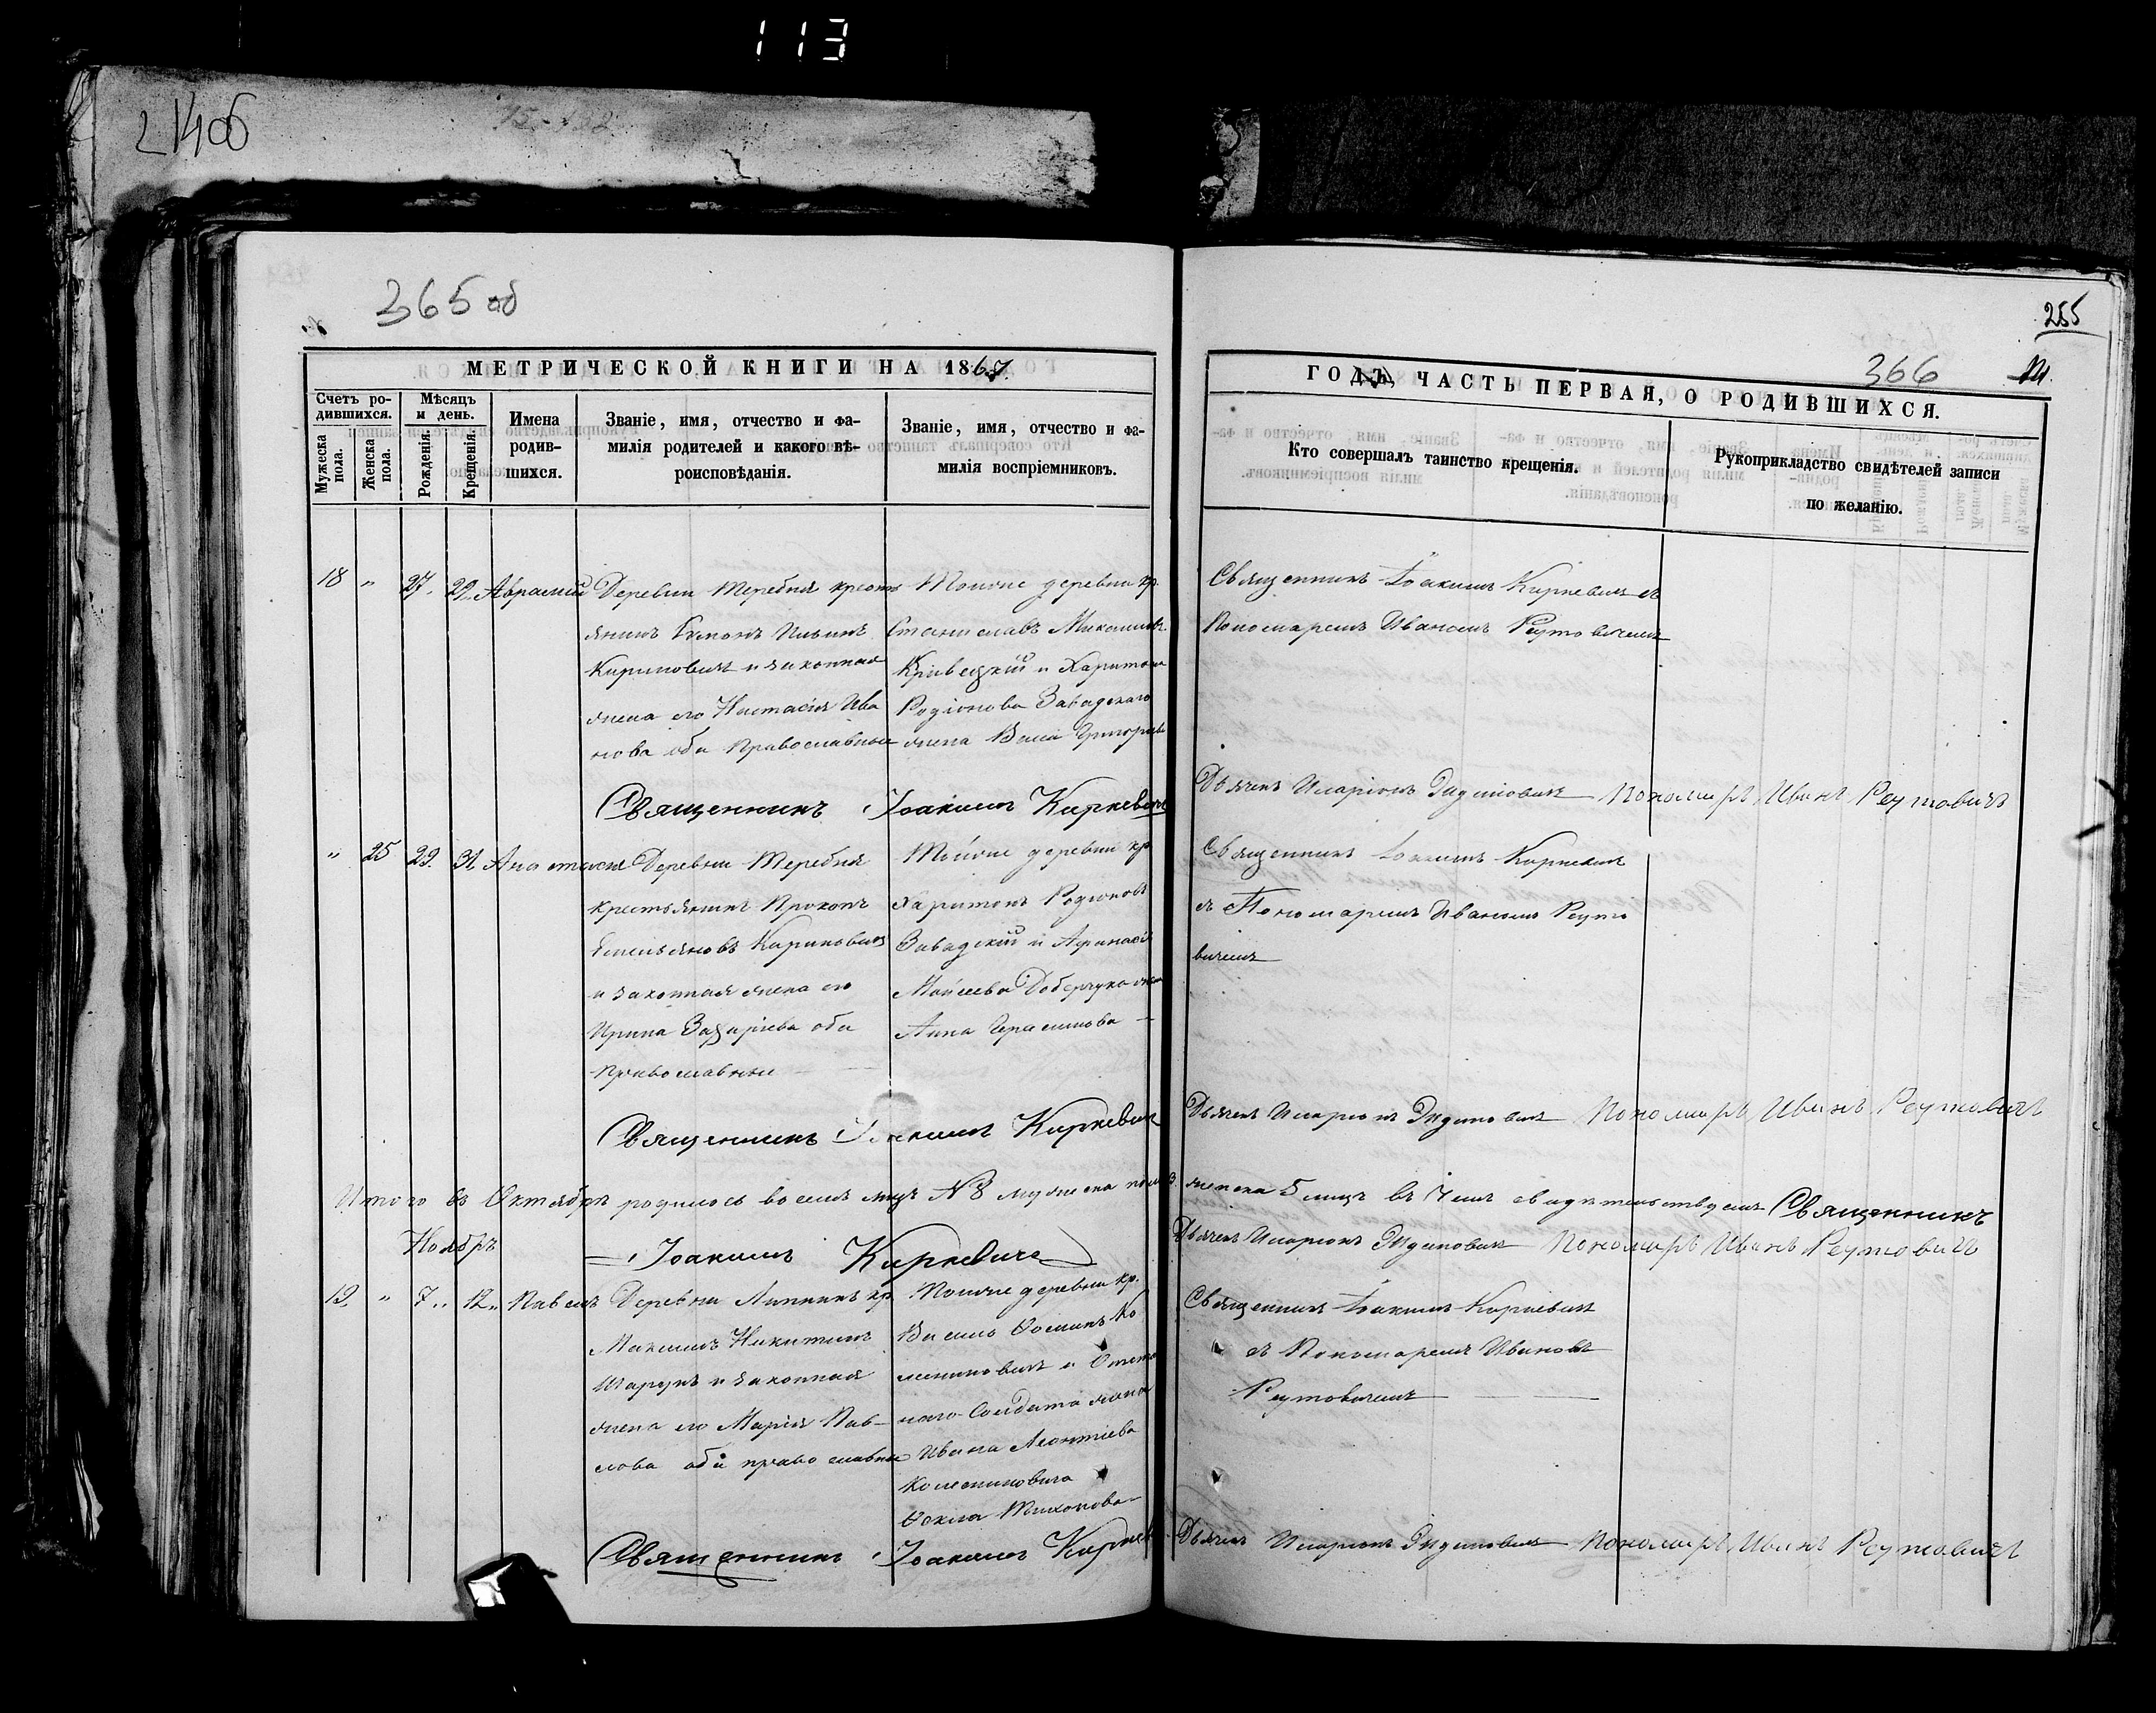 113
2140б
365 об
255
366
МЕТРИЧЕСКОЙ КНИГИ НА 1867.
ГОДЪ, ЧАСТЬ ПЕРВАЯ, О РОДИВШИХСЯ.
Счетъ ро-
дившихся.
Мужеска
пола.
Женска
пола.
Мѣсяцъ
и день.
Рожденія.
Крещенія.
Имена
родив-
шихся.
Званіе, имя, отчество и фа-
милія родителей и какого вѣ-
роисповѣданія.
Званіе, имя, отчество и фа-
милія воспріемниковъ.
Кто совершалъ таинство крещенія.
Рукоприкладство свидѣтелей записи
по желанію.
18 " 27. 29. Аврамій
Деревни Теребня кресть
янинъ
Кириновичъ и законная
жена его Настасія Ива
нова оба Православные
Тойже деревни кр.
Станиславъ
и Харитона
Родіонова Завадскаго
жена
Священникъ Іоакимъ Киркевичъ съ
Пономаремъ Иваномъ Реутовичемъ
Священникъ Іоакимъ Киркевичъ
Дьячекъ Иларіонъ Пономарь Иванъ Реутовичъ
" 25 29. 31. Анастасія
Деревни Теребня
крестьянинъ Прокопъ
Емельяновъ Кириновичъ
и законная жена его
Ирина Захаріева оба
православные
Тойже деревни кр
Харитонъ Родіоновъ
Завадскій и Афанасія
Мойсеева жена
Анна Герасимова
Священникъ Іоакимъ Киркевичъ
съ Пономаремъ Иваномъ Реуто
вичемъ
Священникъ Іоакимъ Киркевичъ
Дьячекъ Иларіонъ Пономарь Иванъ Реутовичъ
Итого въ Октябрѣ родилось восемь лицъ № 8 мужеска пола 3. женска 5 лицъ въ чемъ свидѣтельствуемъ Священникъ
Іоакимъ Киркевичъ
Дьячекъ Иларіонъ Пономарь Иванъ Реутовичъ
Ноябрь
19. " 7. 12. Павелъ
Деревни кр.
Максимъ Никитинъ
и законная
жена его Марія Пав-
лова оба православные
Тойже деревни кр.
Ко
и
наго Солдата жена
Ивана Леонтіева
Фекла Тихонова
Священникъ Іоакимъ Киркевичъ
съ Пономаремъ Иваномъ
Реутовичемъ
Священникъ Іоакимъ
Дьячекъ Иларіонъ Пономарь Иванъ Реутовичъ